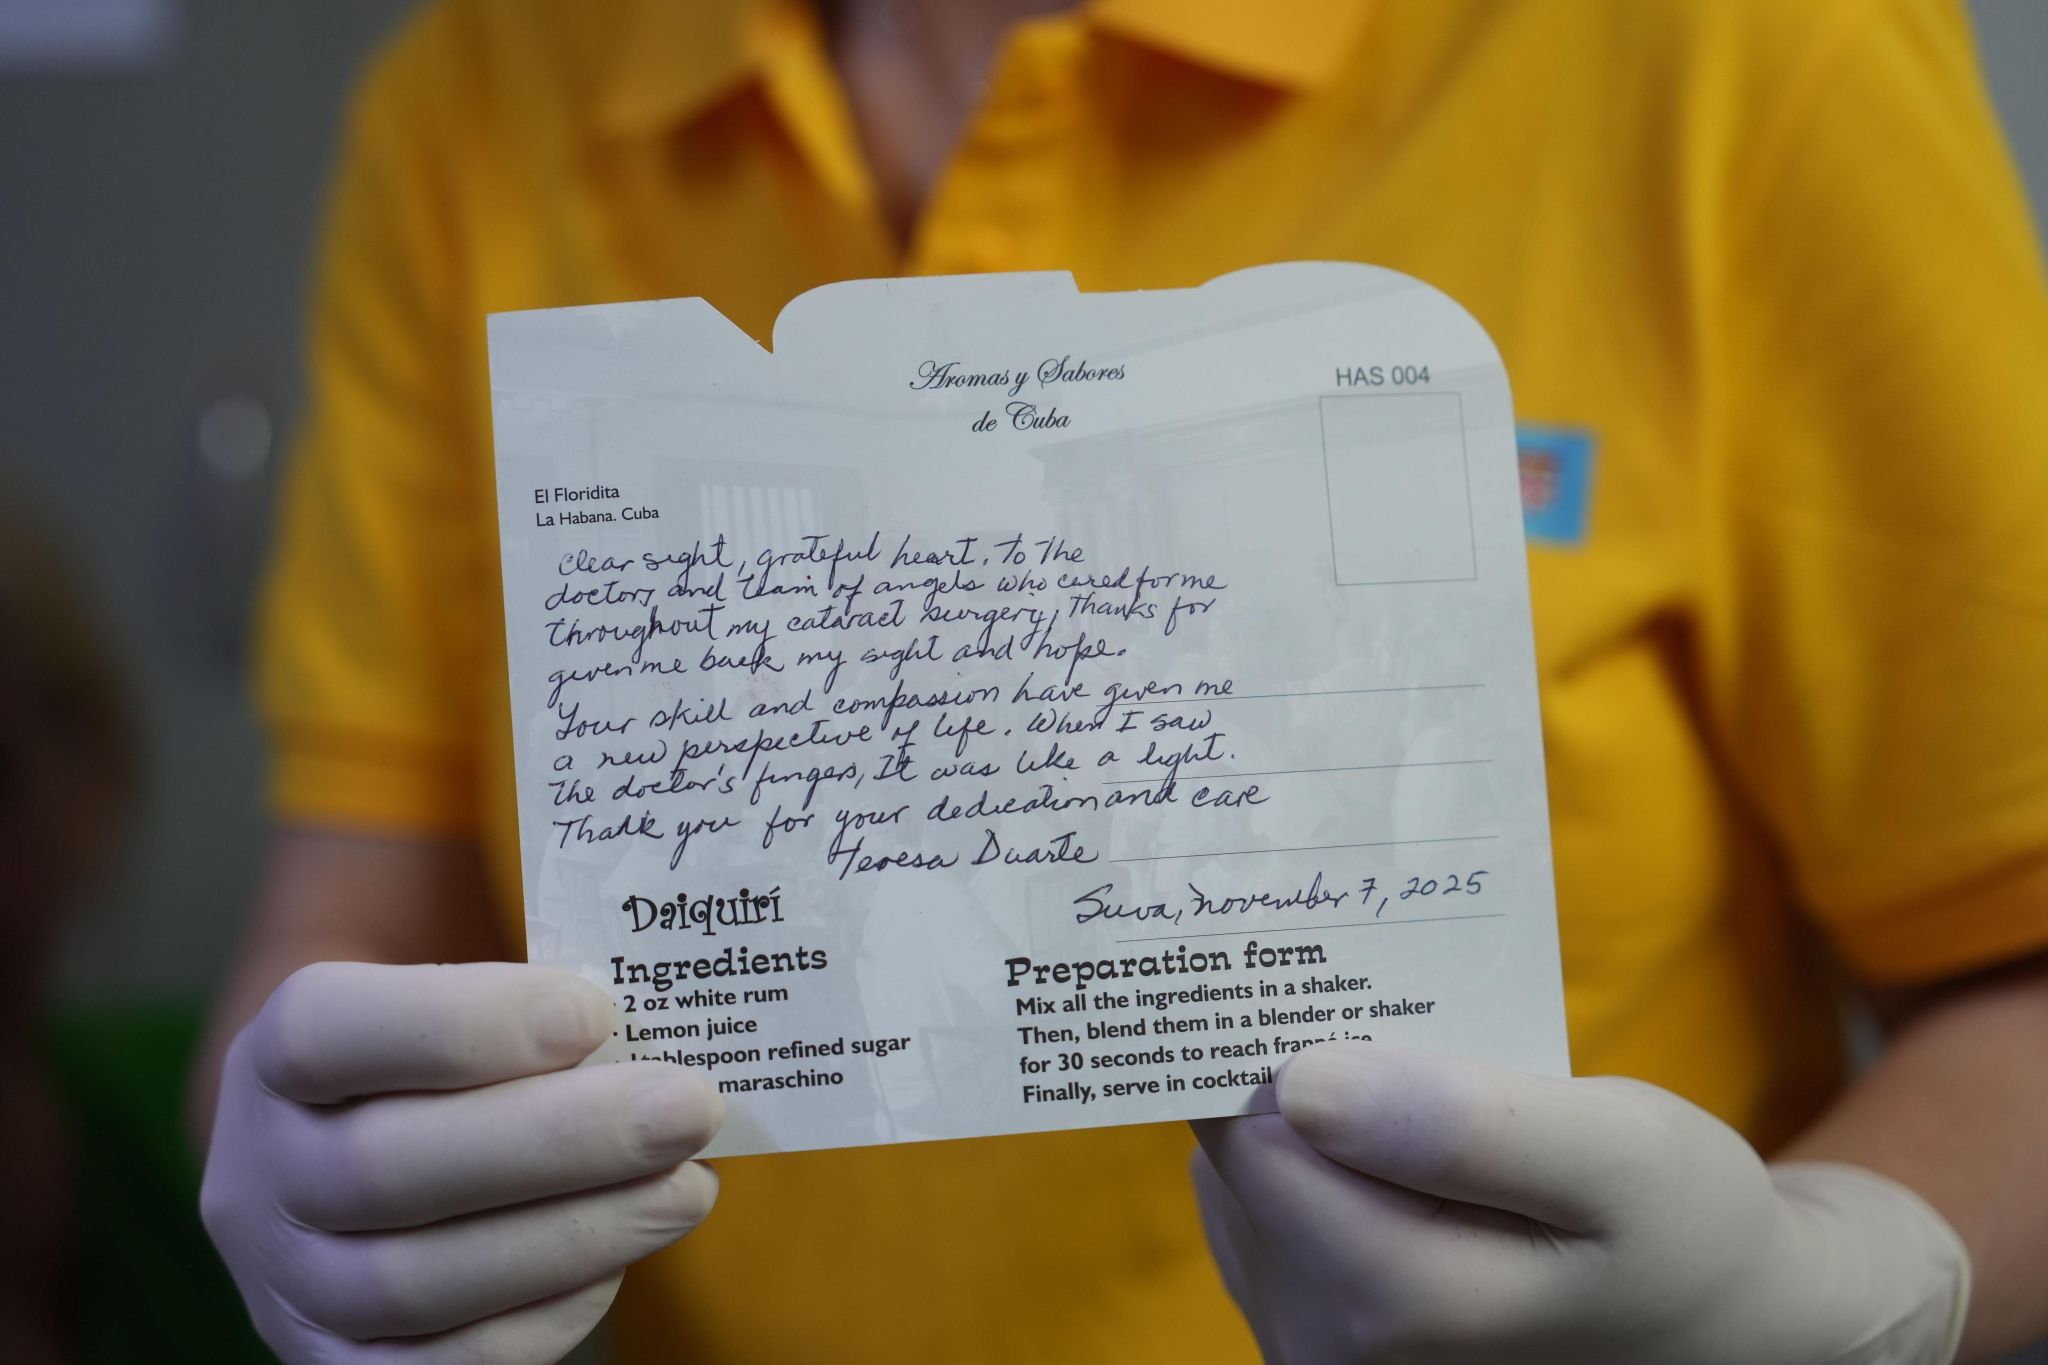 Aromas y Sabores
de Cuba
HAS 004
El Floridita
La Habana. Cuba
Clear sight, grateful heart. To the
doctors and team of angels who cared for me
throughout my cataract surgery, Thanks for
given me back my sight and hope.
Your skill and compassion have given me
a new perspective of life. When I saw
the doctor's fingers, It was like a light.
Thank you for your dedication and care
Teresa Duarte
Suva, november 7, 2025
Daiquirí
Ingredients
· 2 oz white rum
· Lemon juice
refined sugar
maraschino
Preparation form
Mix all the ingredients in a shaker.
Then, blend them in a blender or shaker
for 30 seconds to reach frappé ice
Finally, serve in cocktail